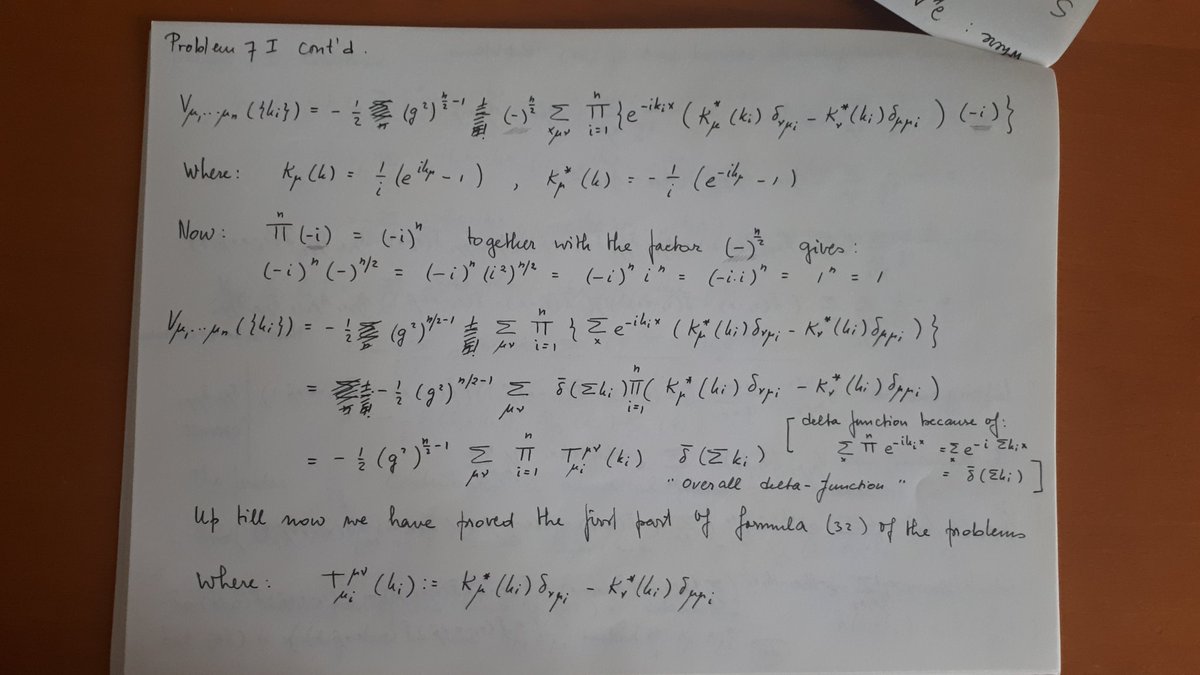 S
where :
Problem 7 I cont'd.
V_{μ₁...μₙ}({k_i}) = - ½ (g²)^{n/2 - 1} (-)^{n/2} Σ_{xμν} Π_{i=1}^{n} { e^{-ik_i x} ( K*_μ(k_i) δ_{νμ_i} - K*_ν(k_i) δ_{μμ_i} ) (-i) }
Where: K_μ(k) = 1/i (e^{ik_μ} - 1) , K*_μ(k) = - 1/i (e^{-ik_μ} - 1)
Now: Π^{n} (-i) = (-i)^n together with the factor (-)^{n/2} gives:
(-i)^n (-)^{n/2} = (-i)^n (i²)^{n/2} = (-i)^n i^n = (-i.i)^n = 1^n = 1
V_{μ₁...μₙ}({k_i}) = - ½ (g²)^{n/2-1} Σ_{μν} Π_{i=1}^{n} { Σ_x e^{-ik_i x} ( K*_μ(k_i) δ_{νμ_i} - K*_ν(k_i) δ_{μμ_i} ) }
= - ½ (g²)^{n/2-1} Σ_{μν} δ̄(Σk_i) Π_{i=1}^{n} ( K*_μ(k_i) δ_{νμ_i} - K*_ν(k_i) δ_{μμ_i} )
= - ½ (g²)^{n/2-1} Σ_{μν} Π_{i=1}^{n} T^{μν}_{μ_i}(k_i) δ̄(Σk_i)
"overall delta-function"
[delta function because of:
Σ_x Π^{n} e^{-ik_i x} = Σ_x e^{-i Σk_i x}
= δ̄(Σk_i) ]
Up till now we have proved the first part of formula (32) of the problems
Where: T^{μν}_{μ_i}(k_i) := K*_μ(k_i) δ_{νμ_i} - K*_ν(k_i) δ_{μμ_i}